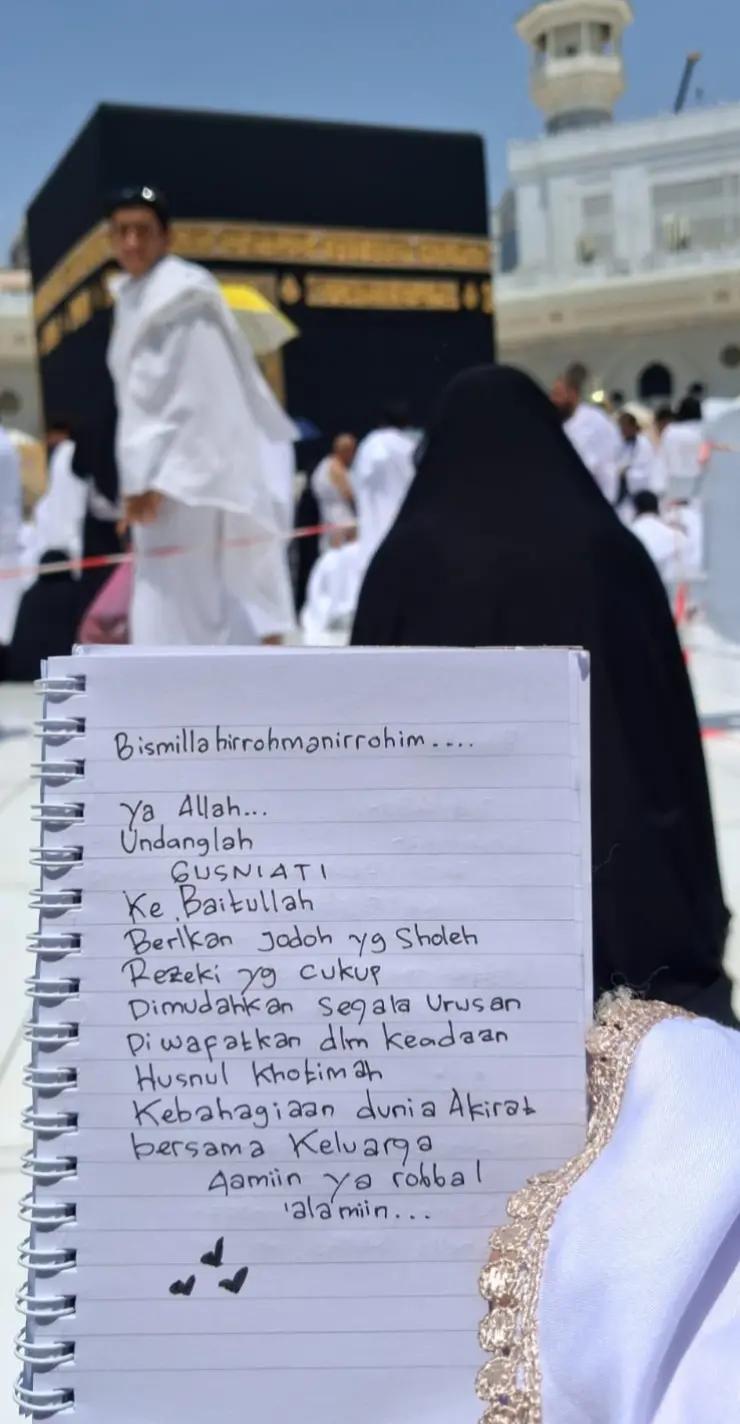 Bismillahirrohmanirrohim....
Ya Allah...
Undanglah
GUSNIATI
Ke Baitullah
Berikan Jodoh yg Sholeh
Rezeki yg cukup
Dimudahkan Segala Urusan
Diwafatkan dlm keadaan
Husnul Khotimah
Kebahagiaan dunia Akirat
bersama Keluarga
Aamiin ya robbal
'alamiin...